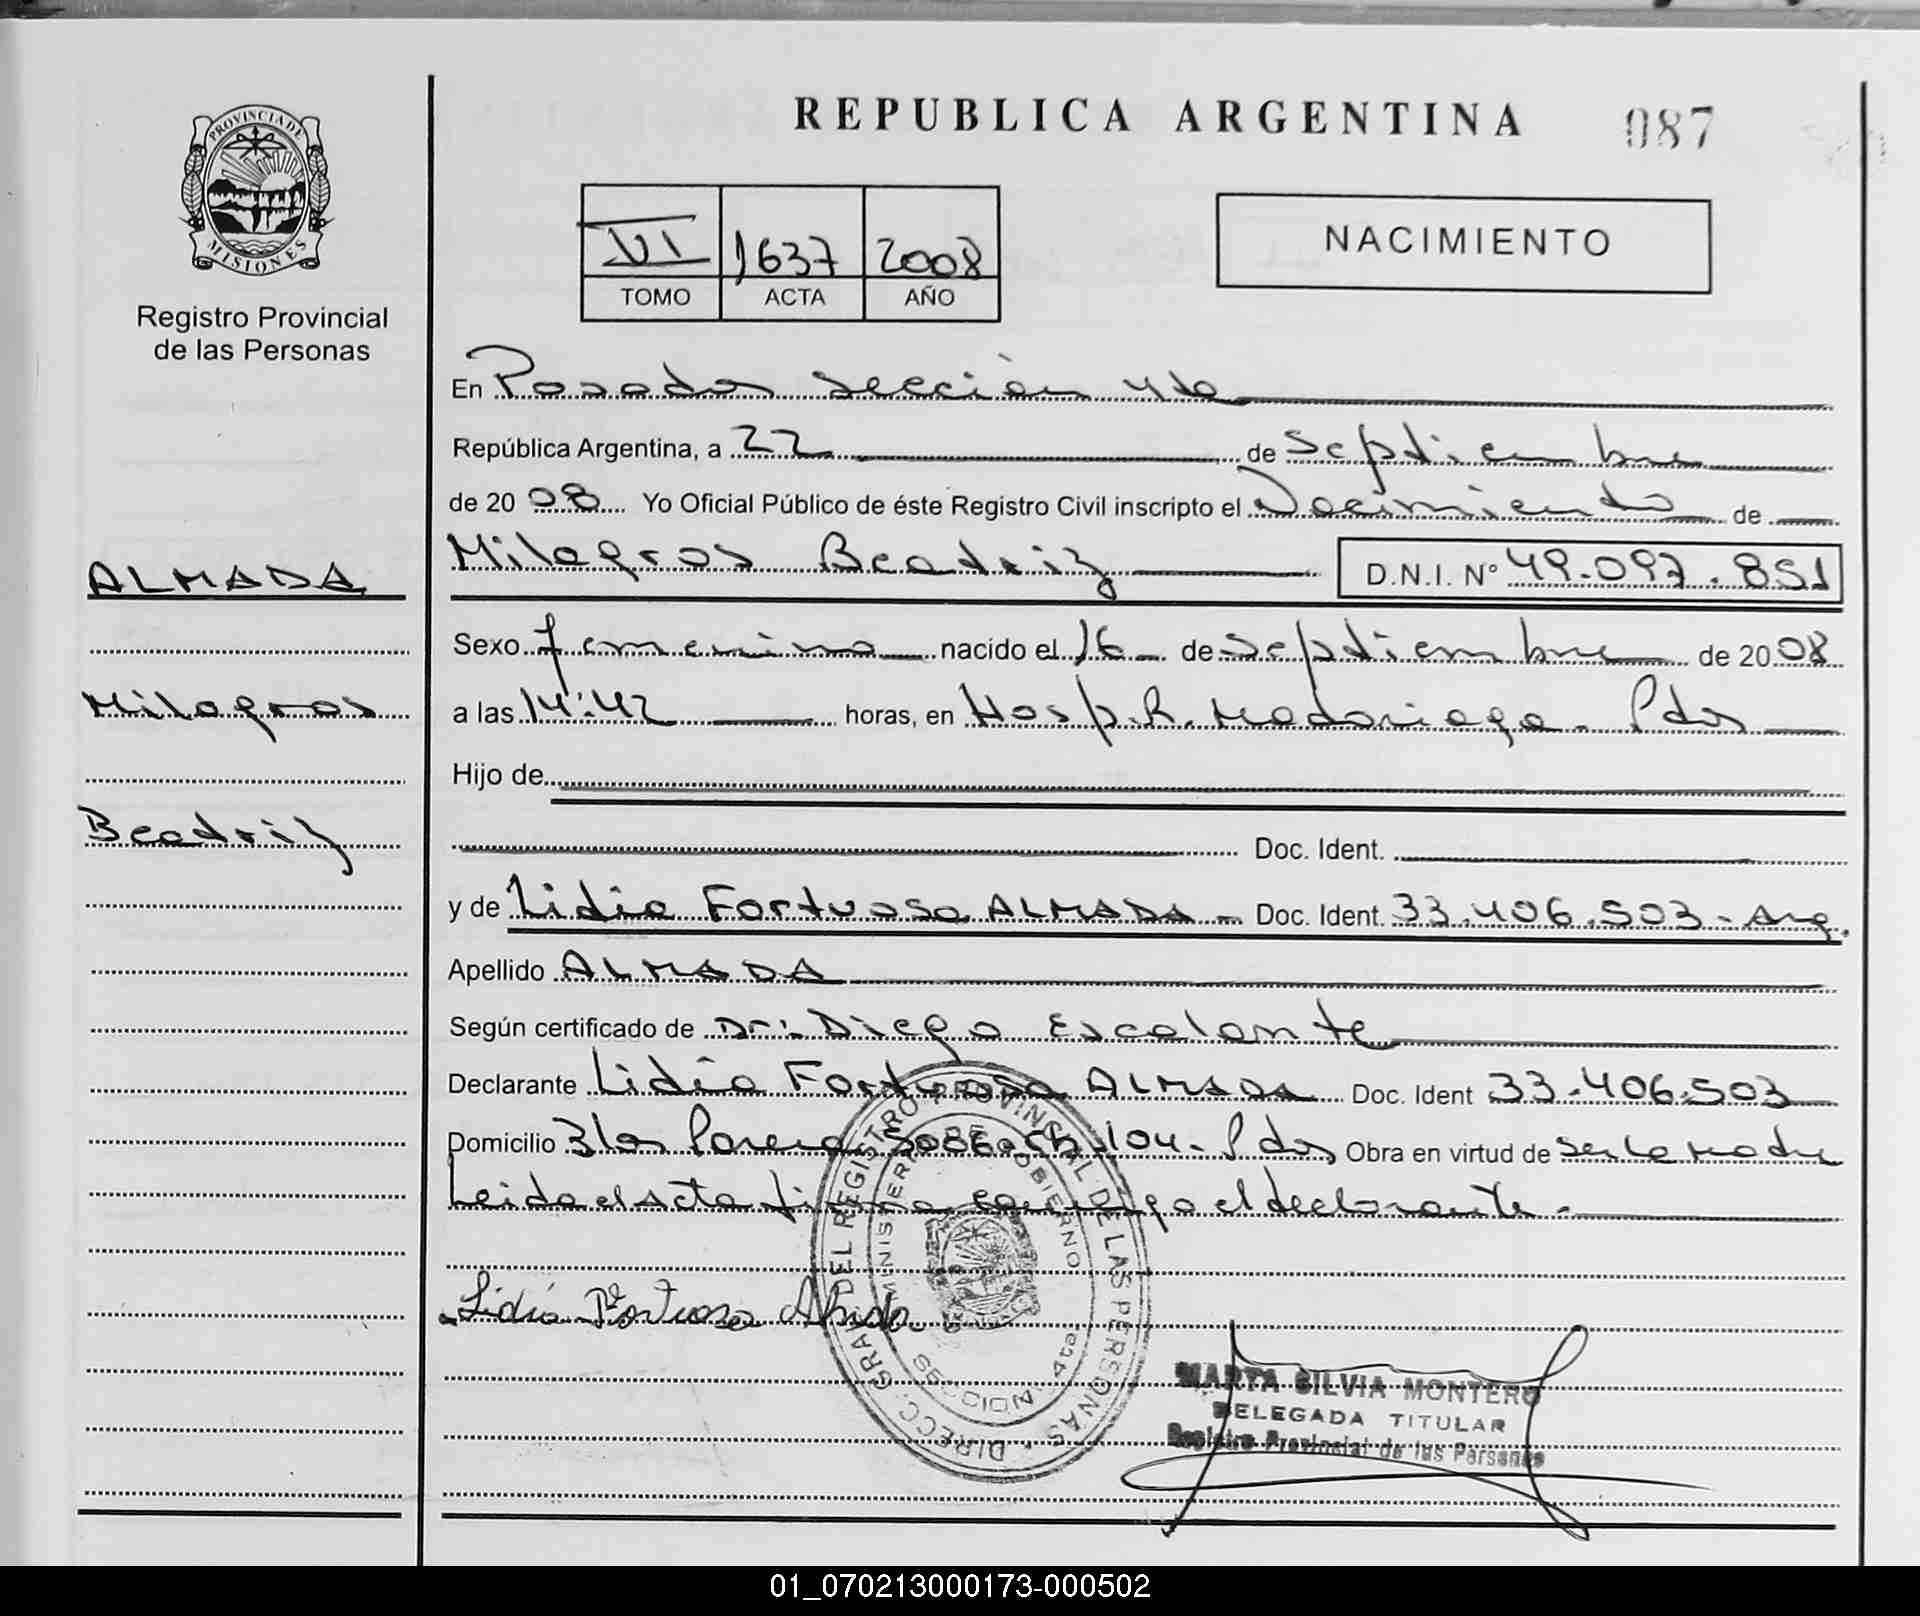 REPUBLICA ARGENTINA 087
PROVINCIA DE MISIONES
Registro Provincial
de las Personas
VI 1637 2008
TOMO ACTA AÑO
NACIMIENTO
En Posadas sección 4ta
República Argentina, a 22 de Septiembre
de 2008 Yo Oficial Público de éste Registro Civil inscripto el Nacimiento de
ALMADA
Milagros
Beatriz
Milagros Beatriz D.N.I. Nº 49.097.851
Sexo femenino nacido el 16 de Septiembre de 2008
a las 14:42 horas, en Hosp. R. Madariaga - Pdas
Hijo de
Doc. Ident.
y de Lidia Fortuosa ALMADA - Doc. Ident. 33.406.503 - Arg.
Apellido ALMADA
Según certificado de Dr: Diego Escalante
Declarante Lidia Fortuosa ALMADA Doc. Ident 33.406.503
Domicilio Ch 104 - Pdas Obra en virtud de ser la madre
Leida el acta firma conmigo el declarante -
Lidia Fortuosa Almada
DIRECC. GRAL DEL REGISTRO PROVINCIAL DE LAS PERSONAS
MINISTERIO DE GOBIERNO
SECCION 4ta
MARTA SILVIA MONTERO
DELEGADA TITULAR
Registro Provincial de las Personas
01_070213000173-000502